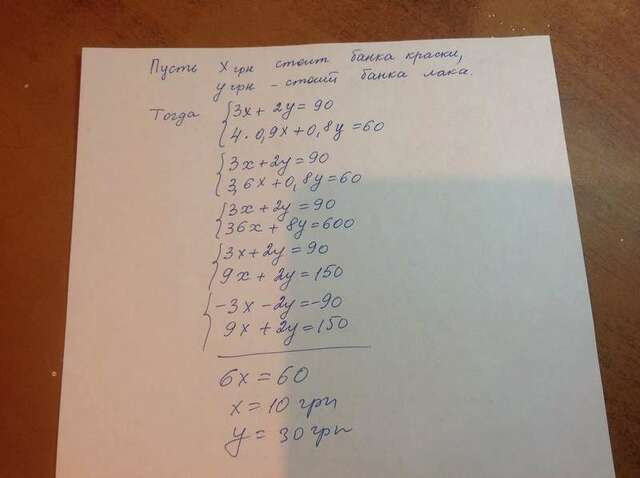 Пусть x грн стоит банка краски,
y грн - стоит банка лака.
Тогда { 3x + 2y = 90
4 · 0,9x + 0,8y = 60
{ 3x + 2y = 90
3,6x + 0,8y = 60
{ 3x + 2y = 90
36x + 8y = 600
{ 3x + 2y = 90
9x + 2y = 150
{ -3x - 2y = -90
9x + 2y = 150
6x = 60
x = 10 грн
y = 30 грн